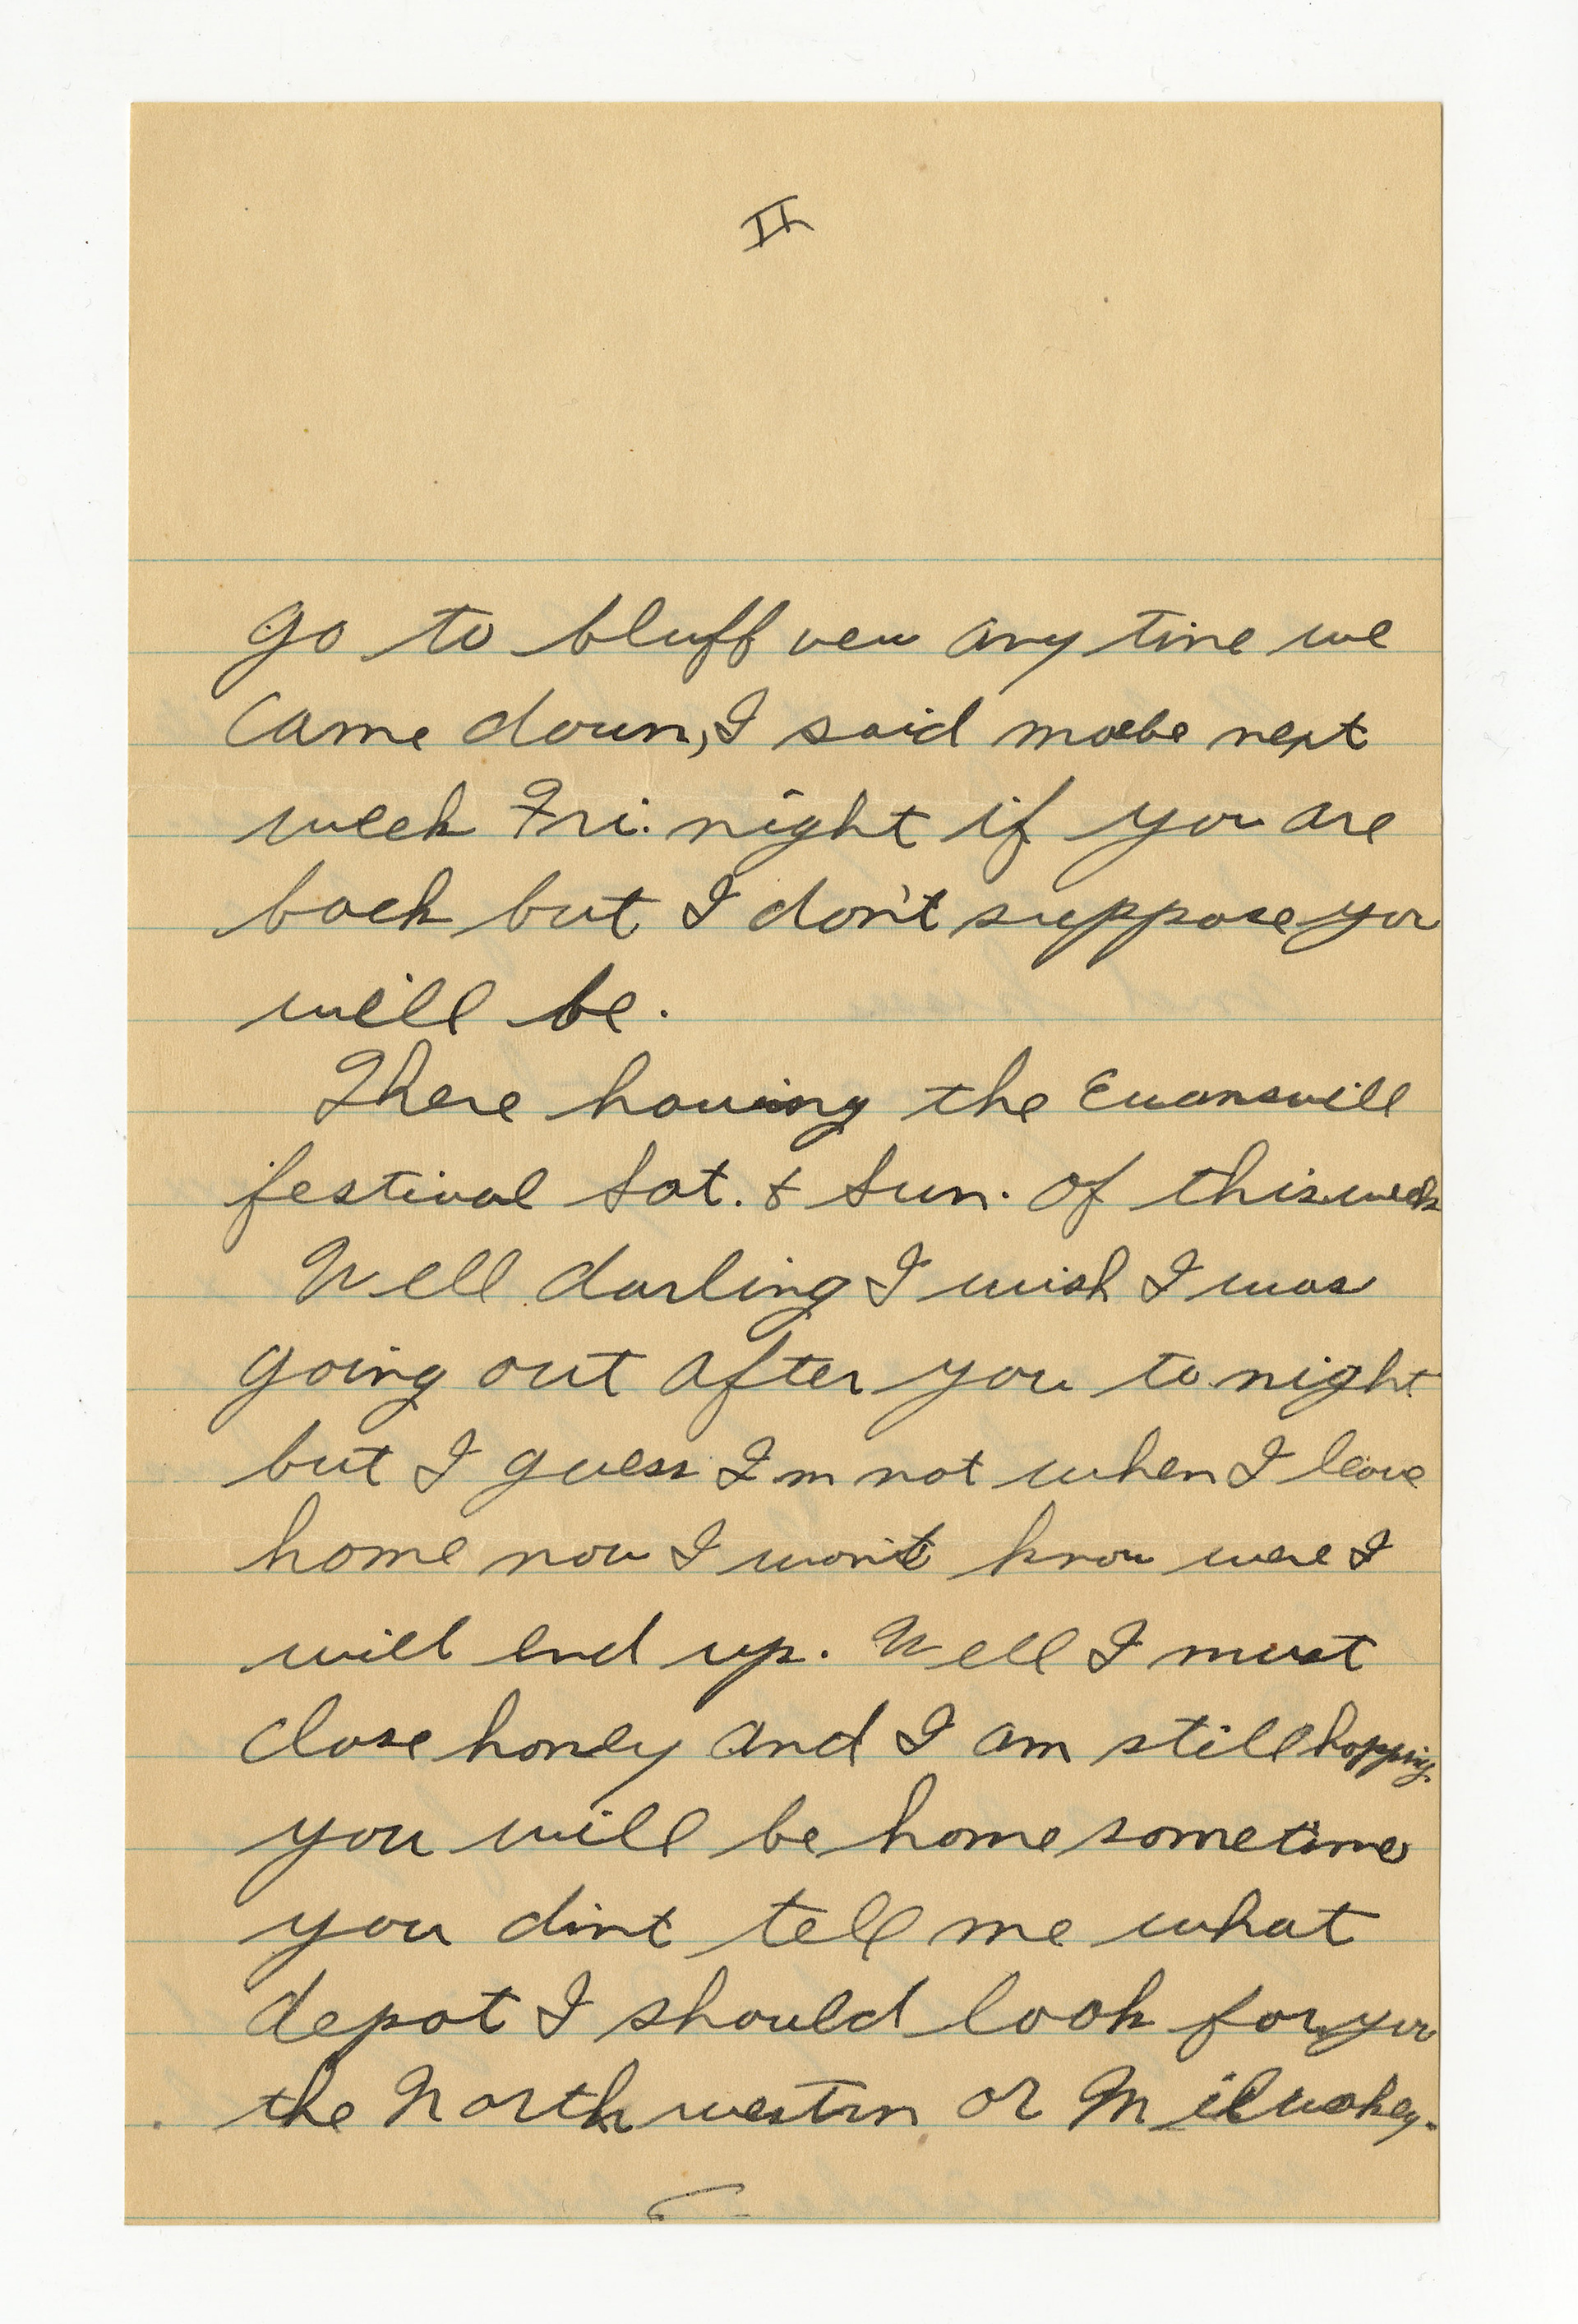 II
go to bluff vew any time we
came down, I said maebe next
week Fri. night if you are
back but I don't suppose you
will be.
There having the Evansvill
festival Sat. & Sun. of this week
Well darling I wish I was
going out after you to night
but I guess Im not when I leave
home now I won't know were I
will end up. Well I must
close honey and I am still hopping
you will be home sometime
you dint tell me what
depot I should look for you
the North westrn or Milwakey.